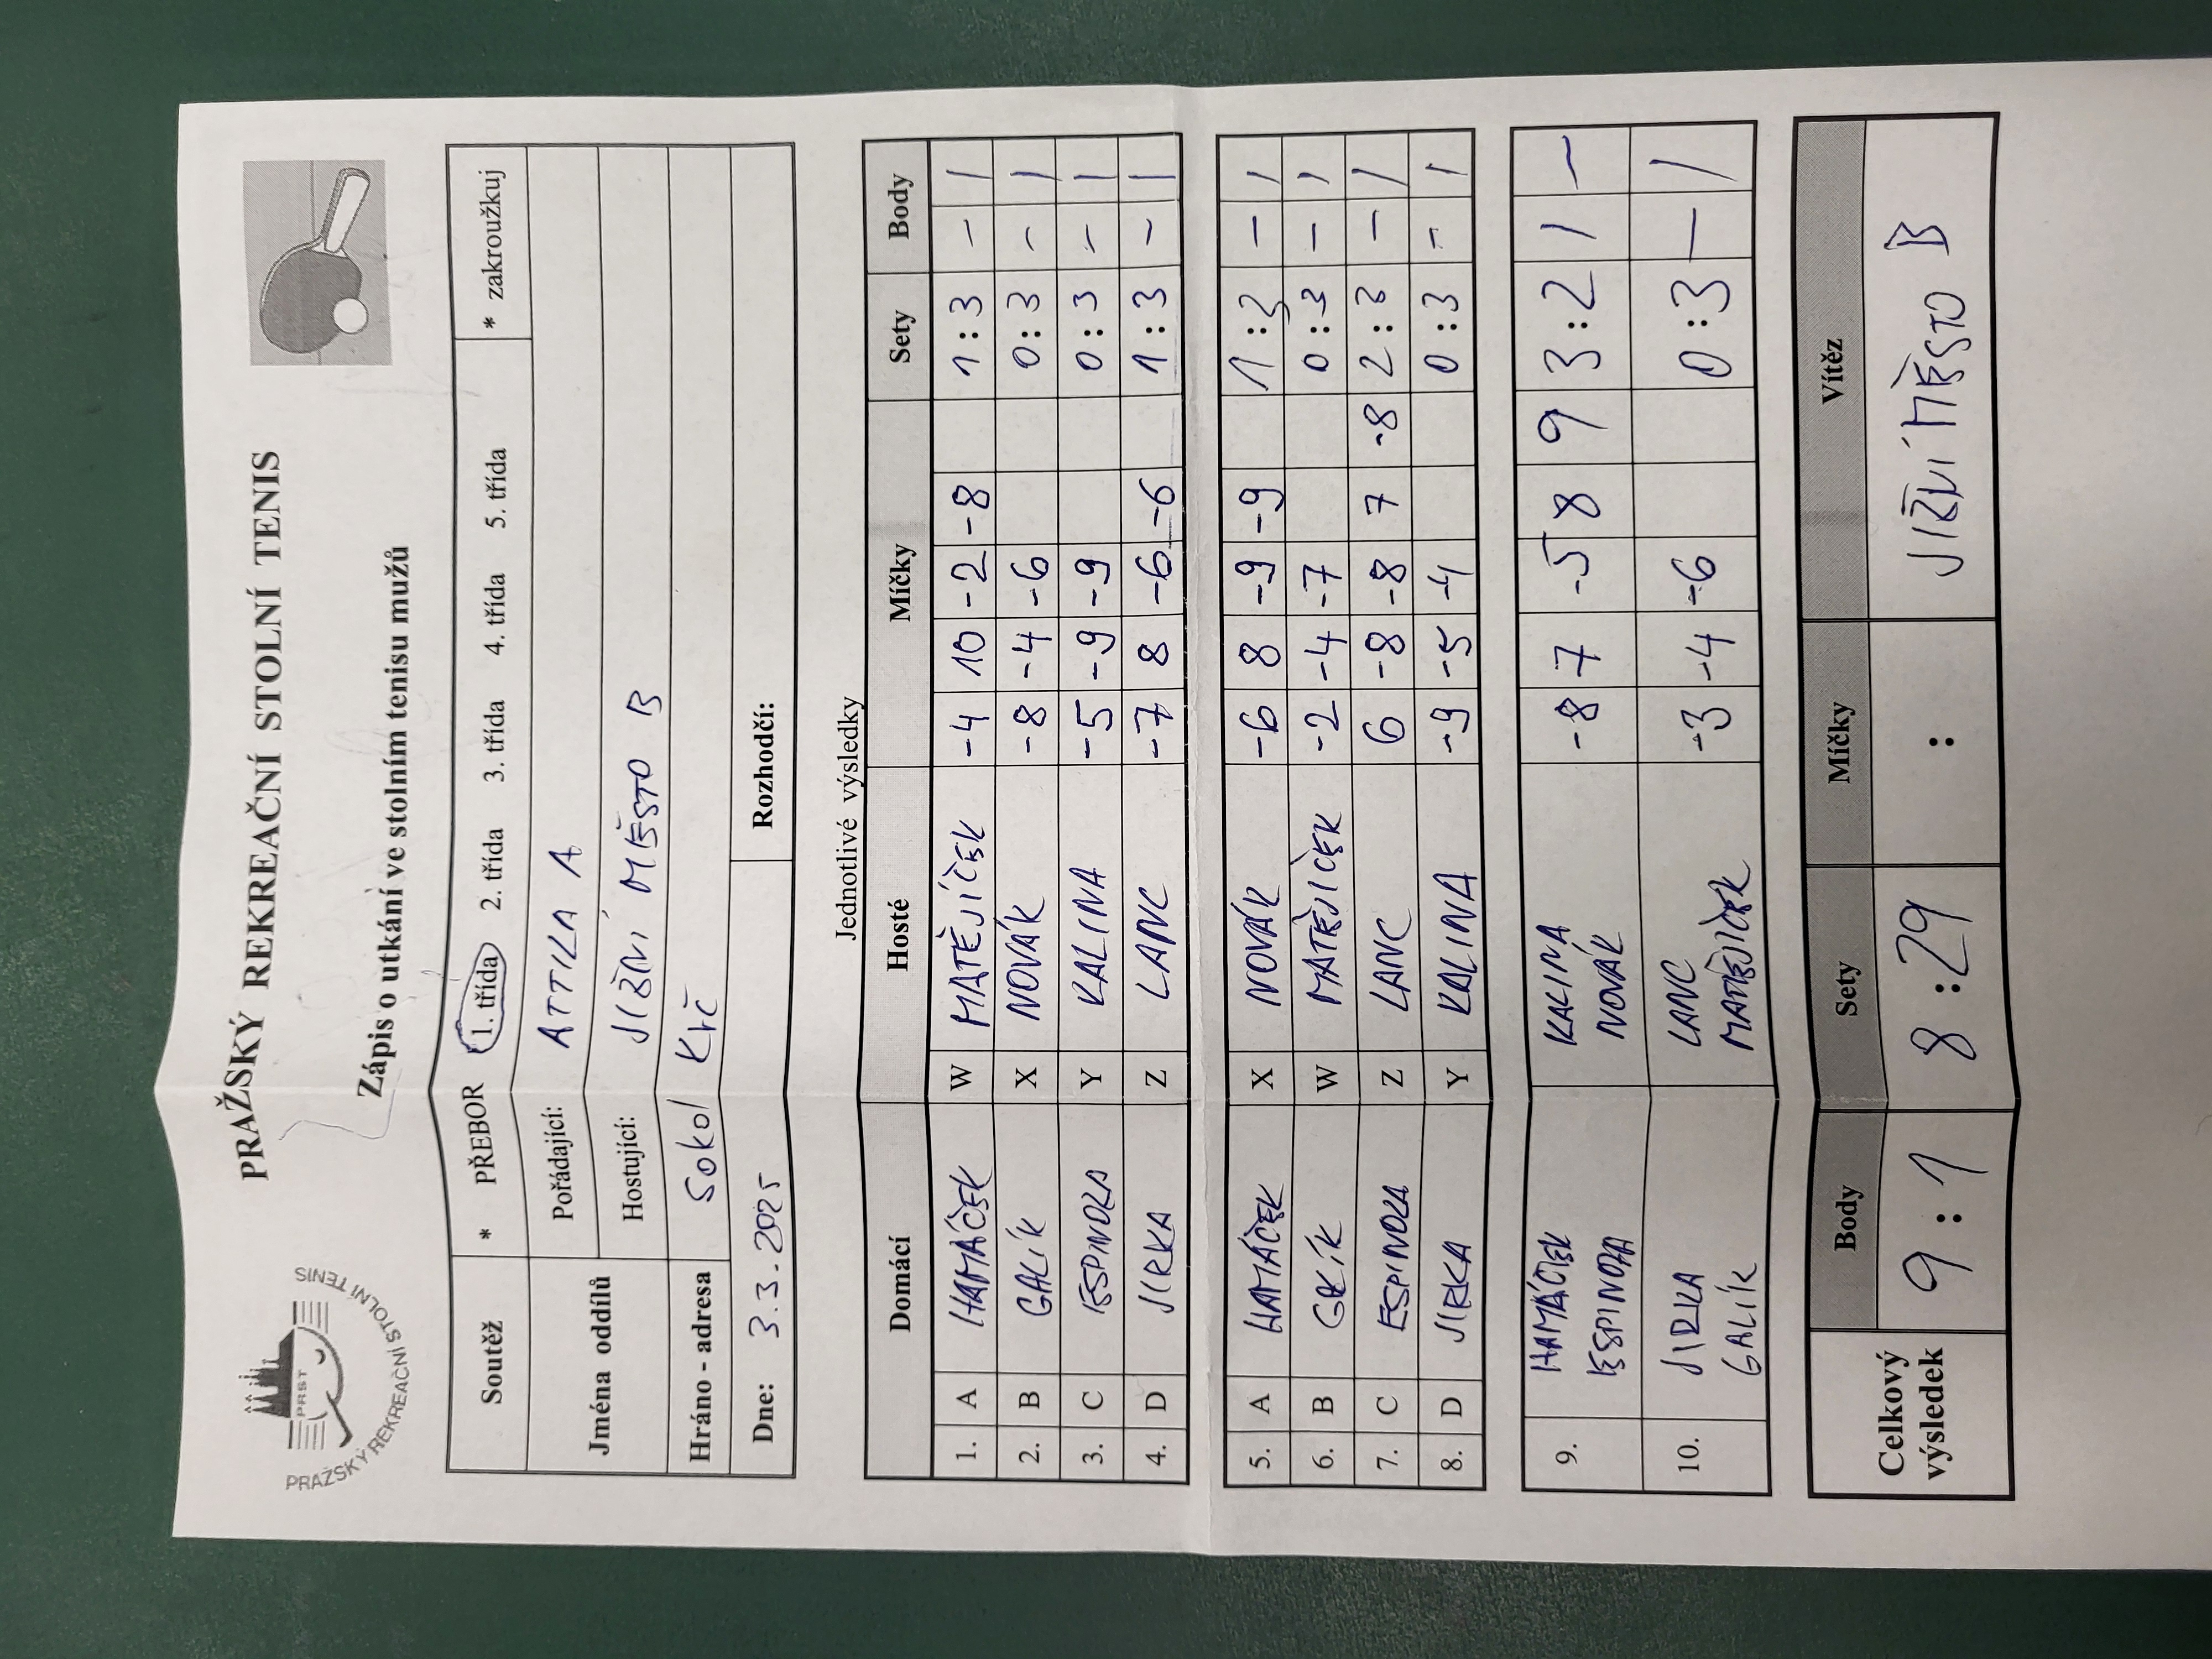 PRAŽSKÝ REKREAČNÍ STOLNÍ TENIS
PRST
PRAŽSKÝ REKREAČNÍ STOLNÍ TENIS
Zápis o utkání ve stolním tenisu mužů
Soutěž * PŘEBOR 1. třída 2. třída 3. třída 4. třída 5. třída * zakroužkuj
Jména oddílů Pořádající: ATTILA A
Hostující: JIŽNÍ MĚSTO B
Hráno - adresa Sokol Krč
Dne: 3.3.2025 Rozhodčí:
Jednotlivé výsledky
Domácí Hosté Míčky Sety Body
1. A HAMÁČEK W MATĚJÍČEK -4 10 -2 -8 1:3 - 1
2. B GALÍK X NOVÁK -8 -4 -6 0:3 - 1
3. C ESPINOZA Y KALINA -5 -9 -9 0:3 - 1
4. D JIRKA Z LANC -7 8 -6 -6 1:3 - 1
5. A HAMÁČEK X NOVÁK -6 8 -9 -9 1:3 - 1
6. B GALÍK W MATĚJÍČEK -2 -4 -7 0:3 - 1
7. C ESPINOZA Z LANC 6 -8 -8 7 -8 2:3 - 1
8. D JIRKA Y KALINA -9 -5 -4 0:3 - 1
9. HAMÁČEK ESPINOZA KALINA NOVÁK -8 7 -5 8 9 3:2 1 -
10. JIRKA GALÍK LANC MATĚJÍČEK -3 -4 -6 0:3 - 1
Celkový výsledek Body Sety Míčky Vítěz
9:1 8:29 : JIŽNÍ MĚSTO B